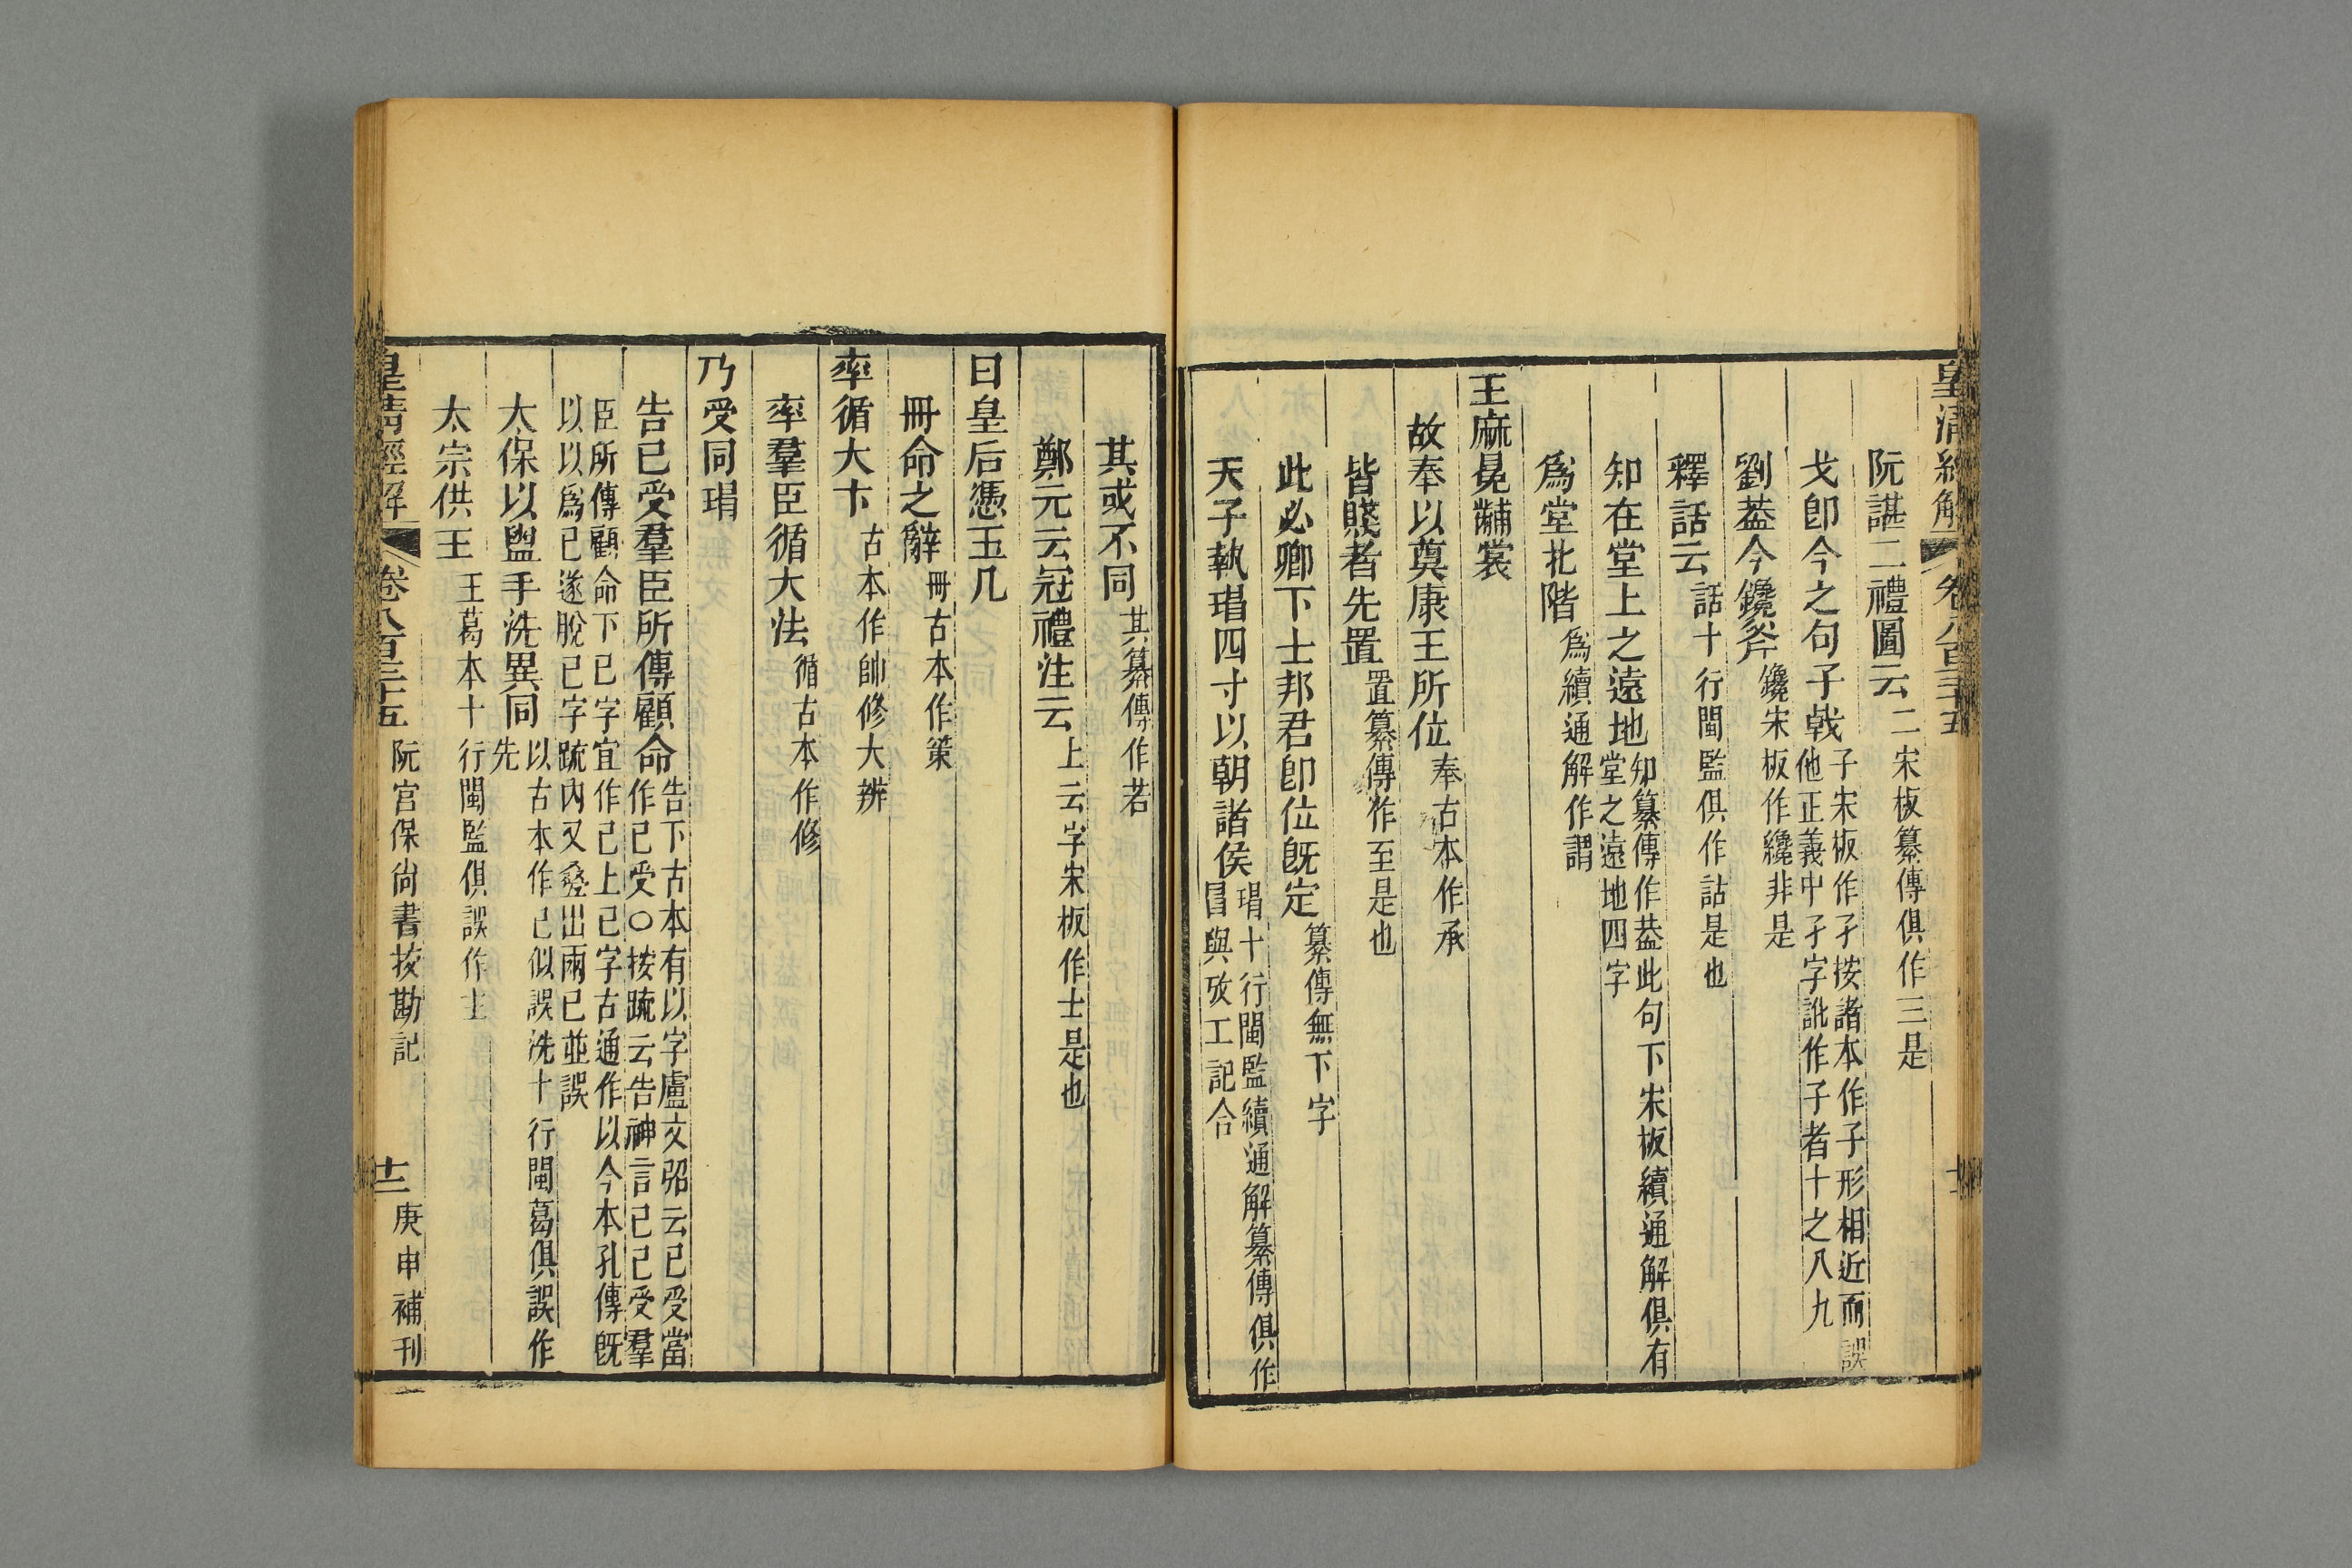 皇清經解 卷八百三十五
阮諶二禮圖云二宋板纂傳俱作三是
戈卽今之句子戟子宋板作孑按諸本作子形相近而誤他正義中孑字訛作子者十之八九
劉葢今鑱斧鑱宋板作纔非是
釋話云話十行閩監俱作詁是也
知在堂上之遠地知纂傳作葢此句下宋板續通解俱有堂之遠地四字
爲堂北階爲續通解作謂
王麻冕黼裳
故奉以奠康王所位奉古本作承
皆賤者先置置纂傳作至是也
此必卿下士邦君卽位旣定纂傳無下字
天子執瑁四寸以朝諸侯瑁十行閩監續通解纂傳俱作冒與攷工記合
其或不同其纂傳作若
鄭元云冠禮注云上云字宋板作士是也
曰皇后憑玉几
冊命之辭冊古本作筞
率循大卞古本作帥修大辨
率羣臣循大法循古本作修
乃受同瑁
告已受羣臣所傳顧命告下古本有以字盧文弨云已受當作已受○按疏云告神言己已受羣
臣所傳顧命下已字宜作己上已字古通作以今本孔傳旣以以爲已遂脫已字疏內又叠出兩已並誤
太保以盥手洗異同以古本作已似誤洗十行閩葛俱誤作先
太宗供王王葛本十行閩監俱誤作主
皇清經解 卷八百三十五 阮宮保尚書挍勘記 十二 庚申補刊